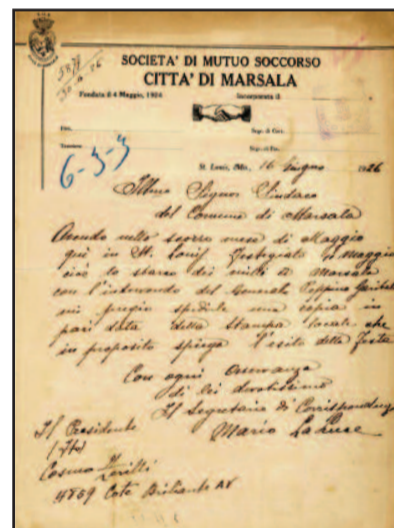 3878
30-6-26
SOCIETA' DI MUTUO SOCCORSO
CITTA' DI MARSALA
Fondata il 4 Maggio, 1924 Incorporata il
Pres. Segr. di Corr.
Tesoriere Segr. di Fin.
6-3-3
St. Louis, Mo., 16 Giugno 1926
Illmo Signor Sindaco
del Comune di Marsala
Avendo nello scorso mese di Maggio
qui in St. Louis festegiato Maggio
cioè lo sbarco dei mille a Marsala
con l'intervendo del Generale Peppino Garibal
mi pregio spedirle una copia in
pari data della Stampa locale che
in proposito spiega l'esito della Festa
Con ogni Osservanza
di lei devotissimo
Il Segretario di Corrispondenza
Mario
Il Presidente
Cosimo
4859 Cote Briliante Av